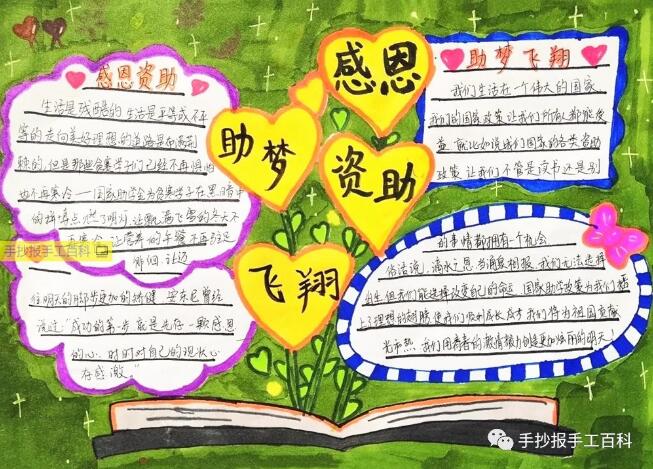 感恩
助梦
资助
飞翔
感恩资助
生活是残酷的 生活是平等或不平
等的走向美好理想的道路
的,但是那些贫寒学子们已经不再惧怕
也不再寒冷 国家助学金为贫寒学子在黑暗中
手抄报手工百科
徘徊,让迈
往明天的脚步更加的矫健 安东尼曾经
说过“成功的第一步就是先存一颗感恩
的心,时时对自己的现状心
存感激”
助梦飞翔
我们生活在一个伟大的国家
我们的国家政策让我们所有人都能受
益 就比如说我们国家的各类资助
政策 让我们不管是读书还是别
的事情都拥有一个机会
俗话说,滴水之恩当涌泉相报,我们无法选择
出生但我们能选择改变自己的命运 国家助学政策为我们插
上了理想的翅膀 我们将为祖国贡献
光和热 我们用青春的激情努力创造更加炫丽的明天!
手抄报手工百科